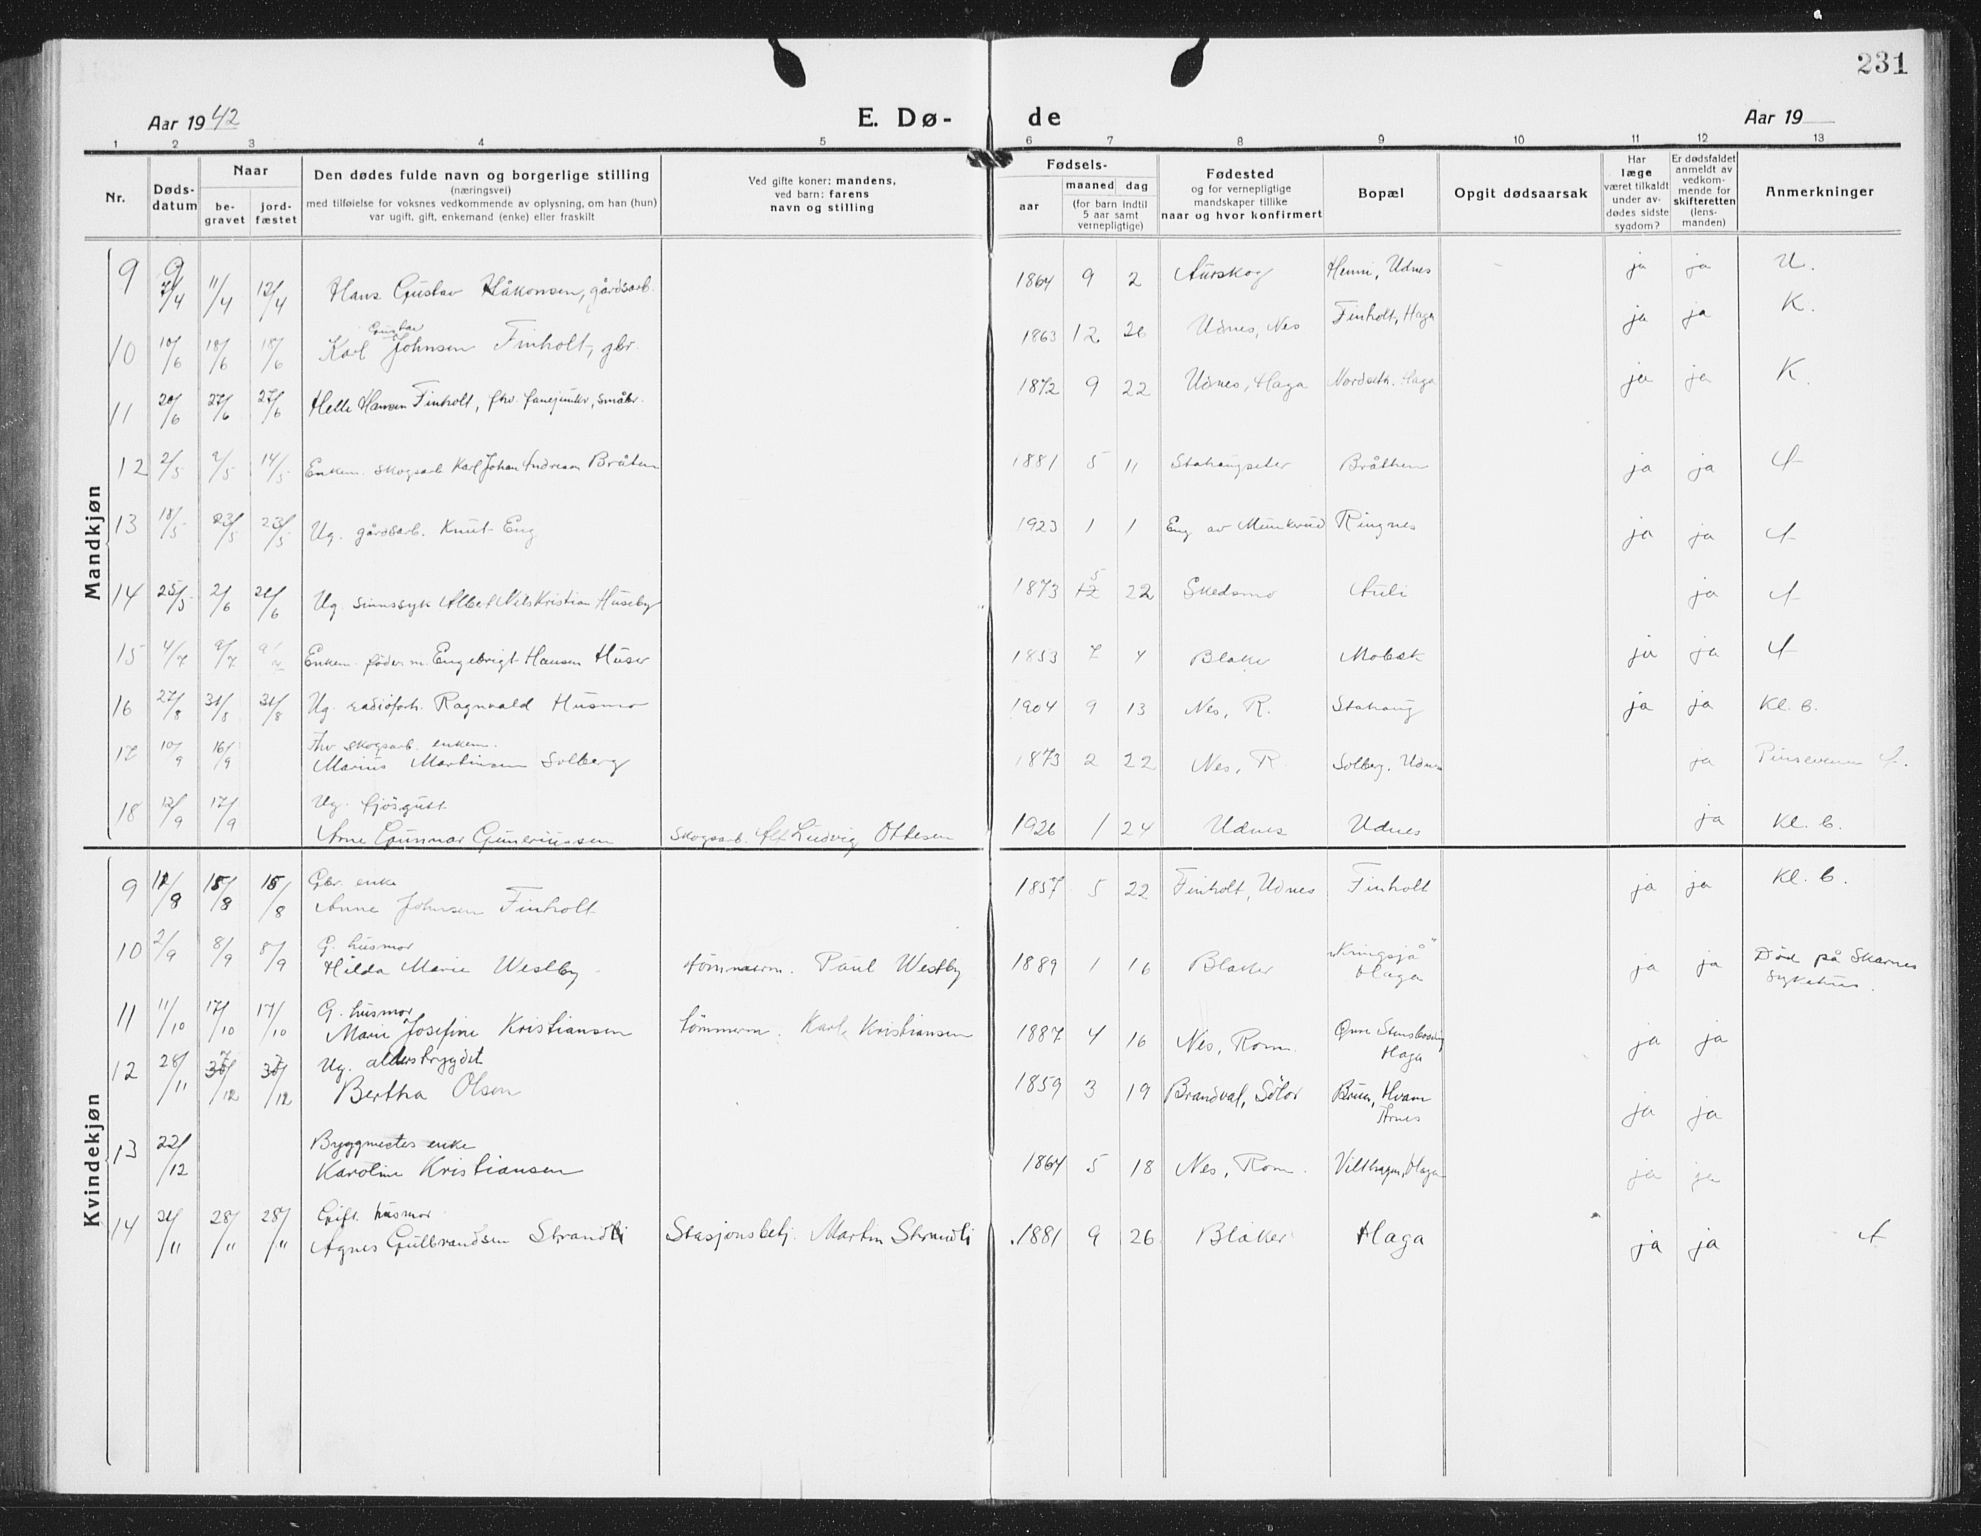 231
Aar 1942 E. Dø- de Aar 19
1 2 3 4 5 6 7 8 9 10 11 12 13
Nr.
Døds-
datum
Naar
be-
gravet
jord-
fæstet
Den dødes fulde navn og borgerlige stilling
(næringsvei)
med tilføielse for voksnes vedkommende av oplysning, om han (hun)
var ugift, gift, enkemand (enke) eller fraskilt
Ved gifte koner: mandens,
ved barn: farens
navn og stilling
Fødsels-
aar
maaned dag
(for barn indtil
5 aar samt
vernepligtige)
Fødested
og for vernepligtige
mandskaper tillike
naar og hvor konfirmert
Bopæl
Opgit dødsaarsak
Har
læge
været tilkaldt
under av-
dødes sidste
sygdom?
Er dødsfaldet
anmeldt av
vedkom-
mende for
skifteretten
(lens-
manden)
Anmerkninger
Mandkjøn
9 11/4 12/4 Hans Gustav Håkonsen, gårdsarb. 1864 9 2 Aurskog Henni, Udnes ja ja U.
Gustav
10 10/6 18/6 18/6 Karl Johnsen Finholt, gbr. 1863 12 26 Udnes, Nes Finholt, Haga ja ja K.
11 20/6 27/6 27/6 Helle Hansen Finholt, fhv. fanejunker, småbr. 1872 9 22 Udnes, Haga Haga ja ja K.
12 2/5 9/5 14/5 Enkem. skogsarb Karl Johan Andresen Bråten 1881 5 11 Bråthen ja ja
13 18/5 23/5 23/5 Ug. gårdsarb. Knut Eng 1923 1 1 Eng av Munkerud Ringnes ja ja
5
14 25/5 2/6 Ug. sinnssyk Albert Nils Kristian Huseby 1873 12 22 Skedsmo Auli ja
15 4/7 9/7 Enkem. føder.m. Engebrigt Hansen Huser 1853 7 4 Blaker ja ja
16 27/8 31/8 31/8 Ug. radioforh. Ragnvald Husmo 1904 9 13 Nes, R. Stahaug ja ja Kl. 6.
17 10/9 16/9 Fhv. skogsarb. enkem.
Marius Martinsen Solberg 1873 2 22 Nes, R. Solberg, Udnes ja Pinsevenn
18 12/9 17/9 Ug. fjøsgutt
Arne Gunnar Guneriussen skogsarb. Alf Ludvig Ottesen 1926 1 24 Udnes Udnes ja Kl. 6.
Kvindekjøn
9 15/8 15/8 Gbr. enke
Anne Johnsen Finholt 1857 5 22 Finholt, Udnes Finholt ja ja Kl. 6.
10 2/9 8/9 8/9 G. husmor
Hilda Marie Westby tömmerm. Paul Westby 1889 1 16 Blaker "Kringsjå" Haga ja ja Död på Skarnes
sykehus.
11 11/10 17/10 17/10 G. husmor
Marie Josefine Kristiansen tömmerm. Karl Kristiansen 1887 4 16 Nes, Rom. Haga ja ja
12 28/11 Ug. alderstrygdet
Bertha Olsen 1859 3 19 Brandval, Solør Hvam
Årnes ja ja
13 22/12 Byggmesters enke
Karoline Kristiansen 1864 5 18 Nes, Rom. Haga ja ja
14 28/11 28/11 Gift. husmor
Agnes Gulbrandsen Strandli Stasjonsbetj. Martin Strandli 1881 9 26 Blaker Haga ja ja